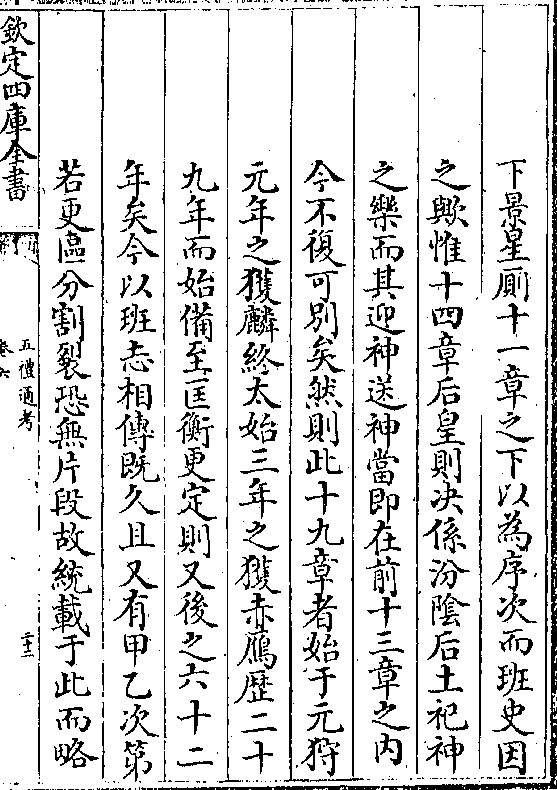 下景星厠十一章之下以為序次而班史因
之歟惟十四章后皇則决係汾陰后土祀神
之樂而其迎神送神當即在前十三章之内
今不復可别矣然則此十九章者始于元狩
元年之獲麟終太始三年之獲赤鴈歴二十
九年而始備至匡衡更定則又後之六十二
年矣今以班志相傳既久且又有甲乙次第
若更區分割裂恐無片段故統載于此而略
欽定四庫全書
五禮通考
卷六